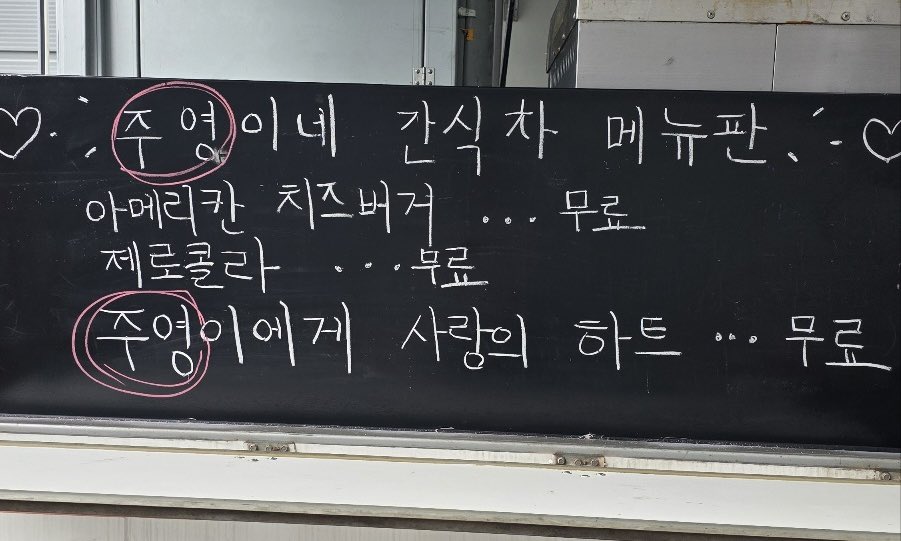 주영이네 간식차 메뉴판
아메리칸 치즈버거 ... 무료
제로콜라 ... 무료
주영이에게 사랑의 하트 ... 무료